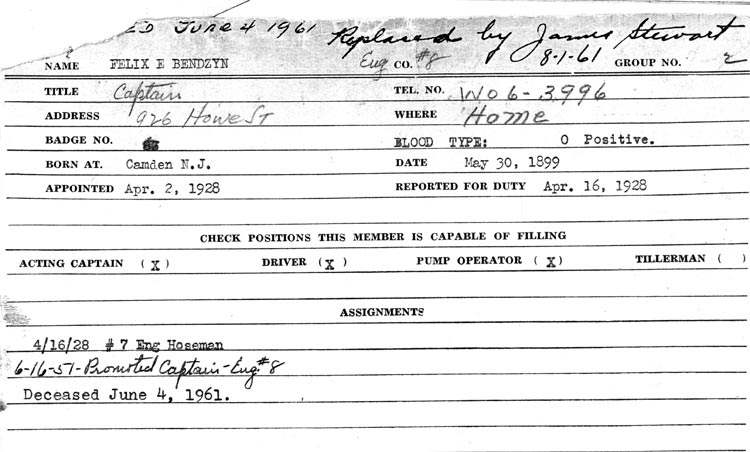 ED June 4 1961 Replaced by James Stewart
NAME FELIX E BENDZYN Eng CO. #8 8-1-61 GROUP NO. 2
TITLE Captain TEL. NO. WO 6-3996
ADDRESS 926 Howe ST WHERE Home
BADGE NO. BLOOD TYPE: O Positive.
BORN AT. Camden N.J. DATE May 30, 1899
APPOINTED Apr. 2, 1928 REPORTED FOR DUTY Apr. 16, 1928
CHECK POSITIONS THIS MEMBER IS CAPABLE OF FILLING
ACTING CAPTAIN (X) DRIVER (X) PUMP OPERATOR (X) TILLERMAN ( )
ASSIGNMENTS
4/16/28 #7 Eng Hoseman
6-16-51-Promoted Captain-Eng.#8
Deceased June 4, 1961.